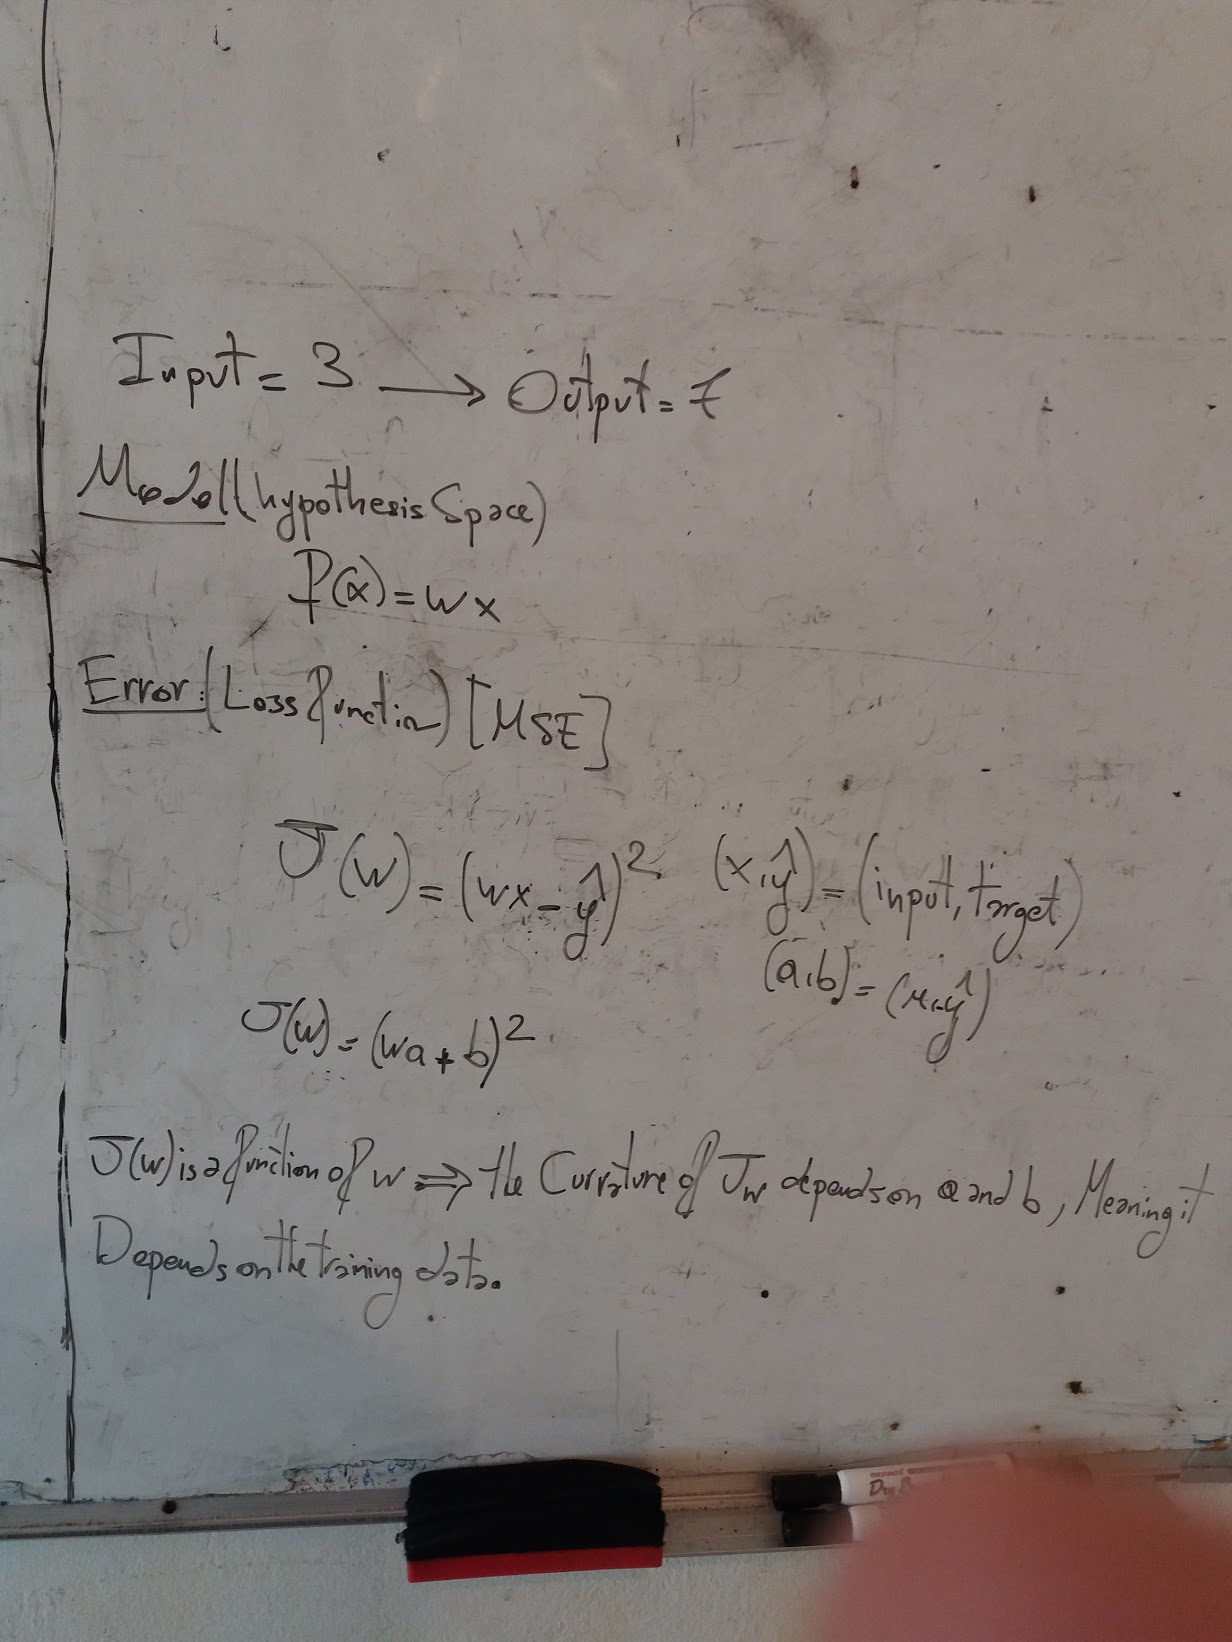 Input = 3 → Output = 7
Model (hypothesis Space)
f(x) = wx
Error: (Loss function) [MSE]
J(w) = (wx - ŷ)² (x,ŷ) = (input, target)
(a,b) = (x,ŷ)
J(w) = (wa + b)²
J(w) is a function of w ⇒ the Curvature of Jw depends on a and b, Meaning it
Depends on the training data.
Dry